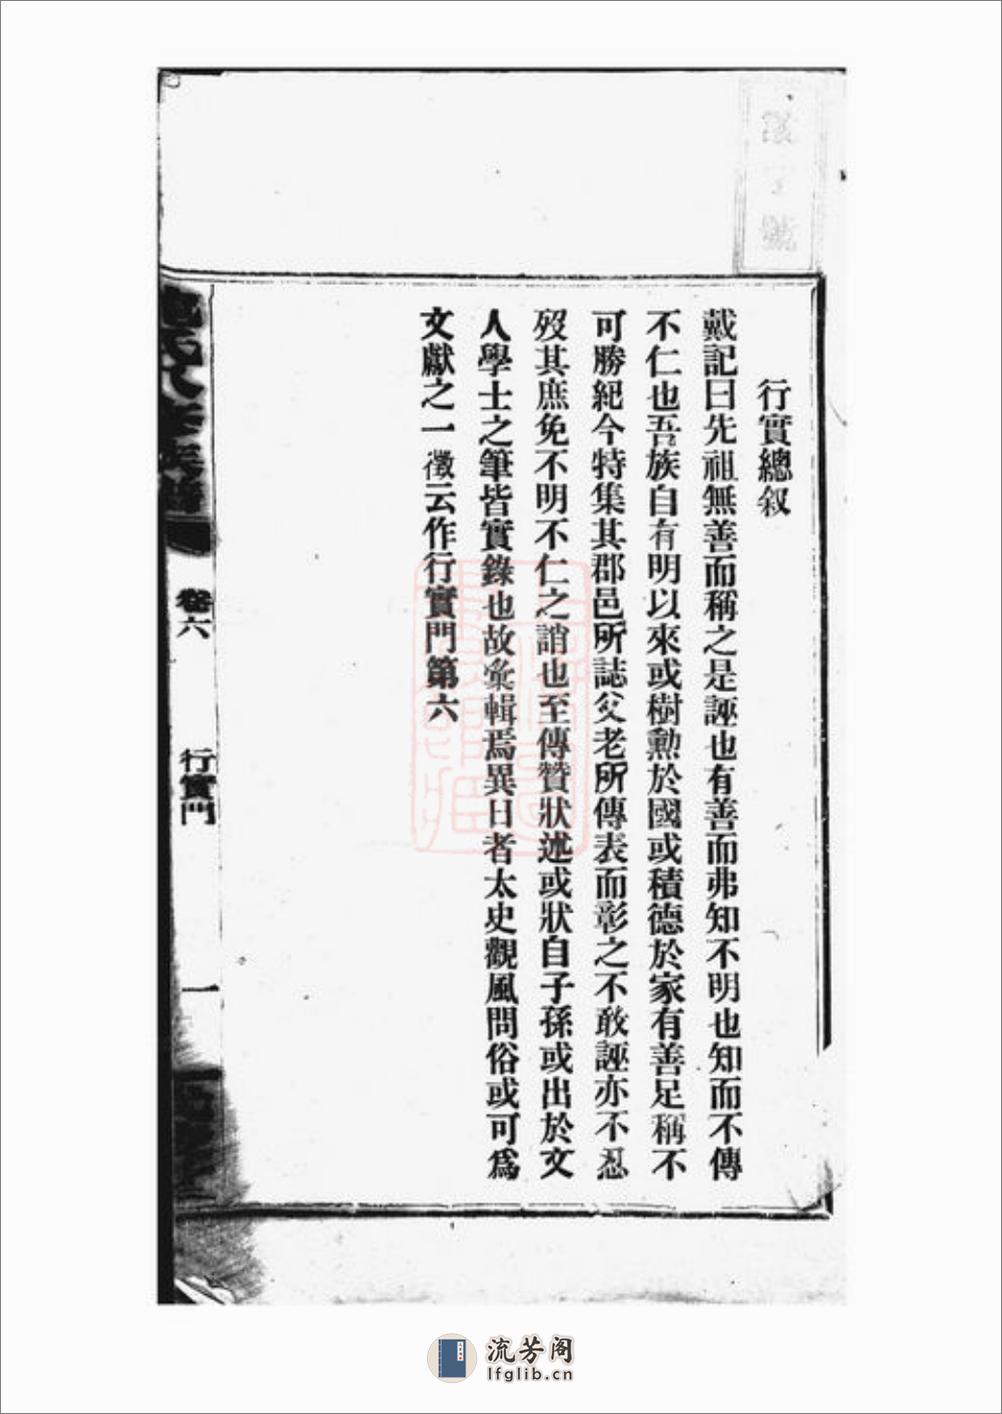 行實總叙
戴記曰先祖無善而稱之是誣也有善而弗知不明也知而不傳
不仁也吾族自有明以來或樹勲於國或積德於家有善足稱不
可勝紀今特集其郡邑所誌父老所傳表而彰之不敢誣亦不忍
歿其庶免不明不仁之誚也至傳贊狀述或狀自子孫或出於文
人學士之筆皆實錄也故彙輯焉異日者太史觀風問俗或可爲
文獻之一徵云作行實門第六
卷六
行實門
一
流芳阁
lfglib.cn